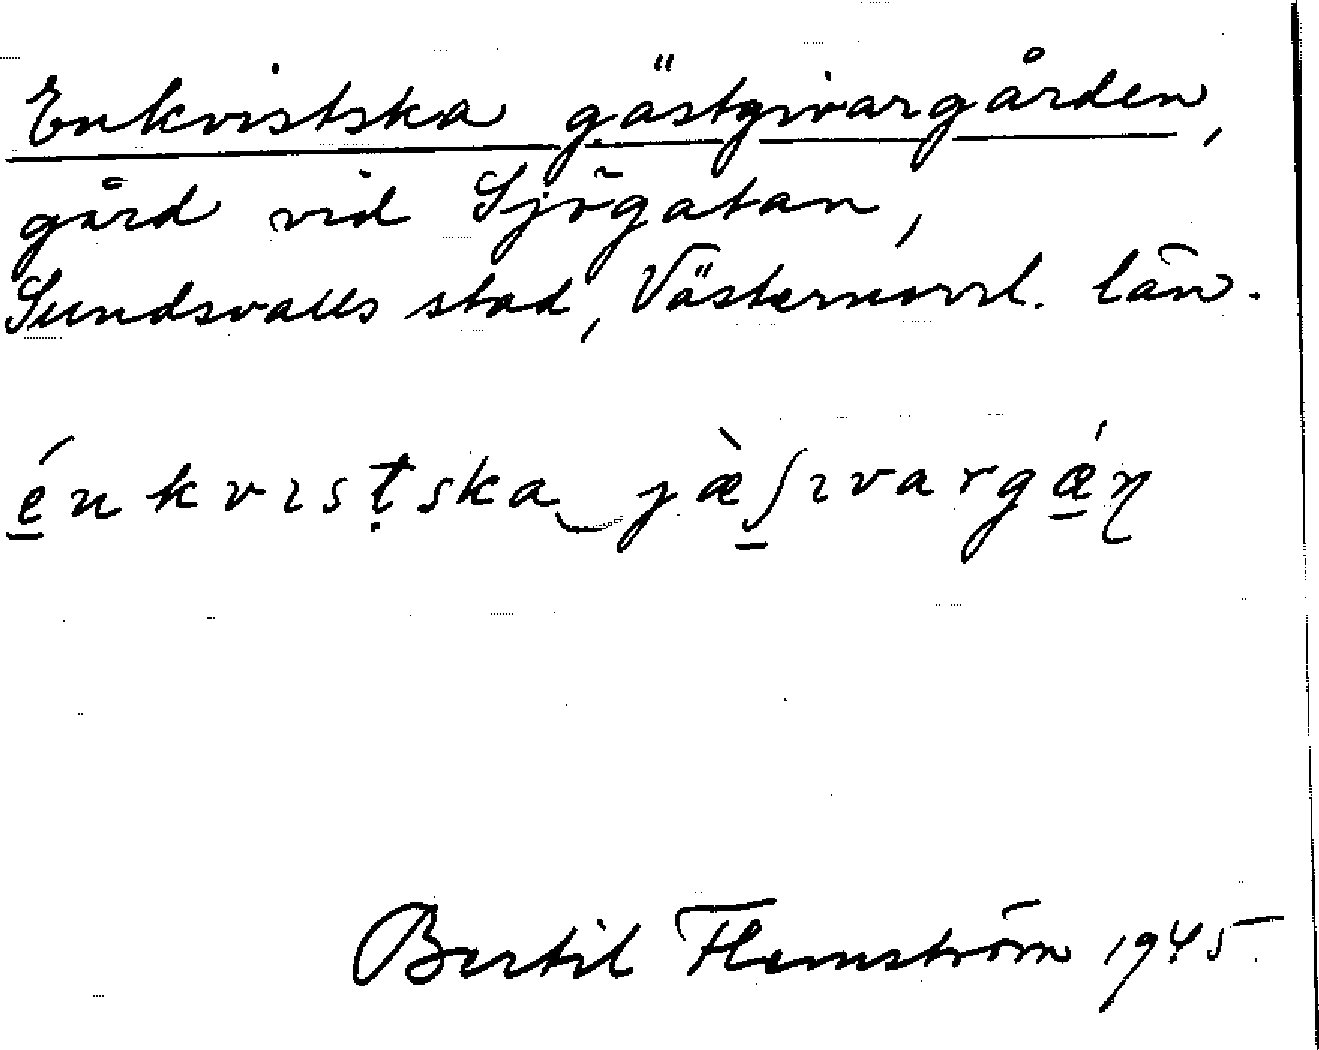 Enkvistska gästgivargården,
gård vid Sjögatan,
Sundsvalls stad, Västernorrl. län.
é̲nkvısṭska‿jæ̲̀ʃıvargǽ̲ɳ
Bertil Flemström 1945.